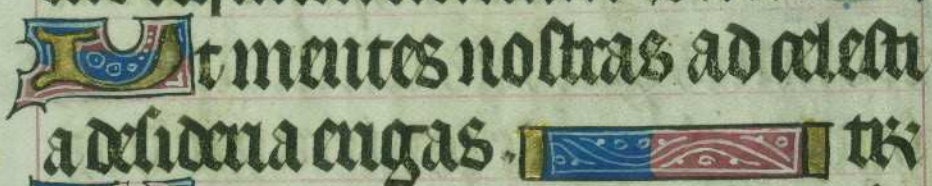 Ut mentes nostras ad celesti
a desideria erigas. te ꝶ